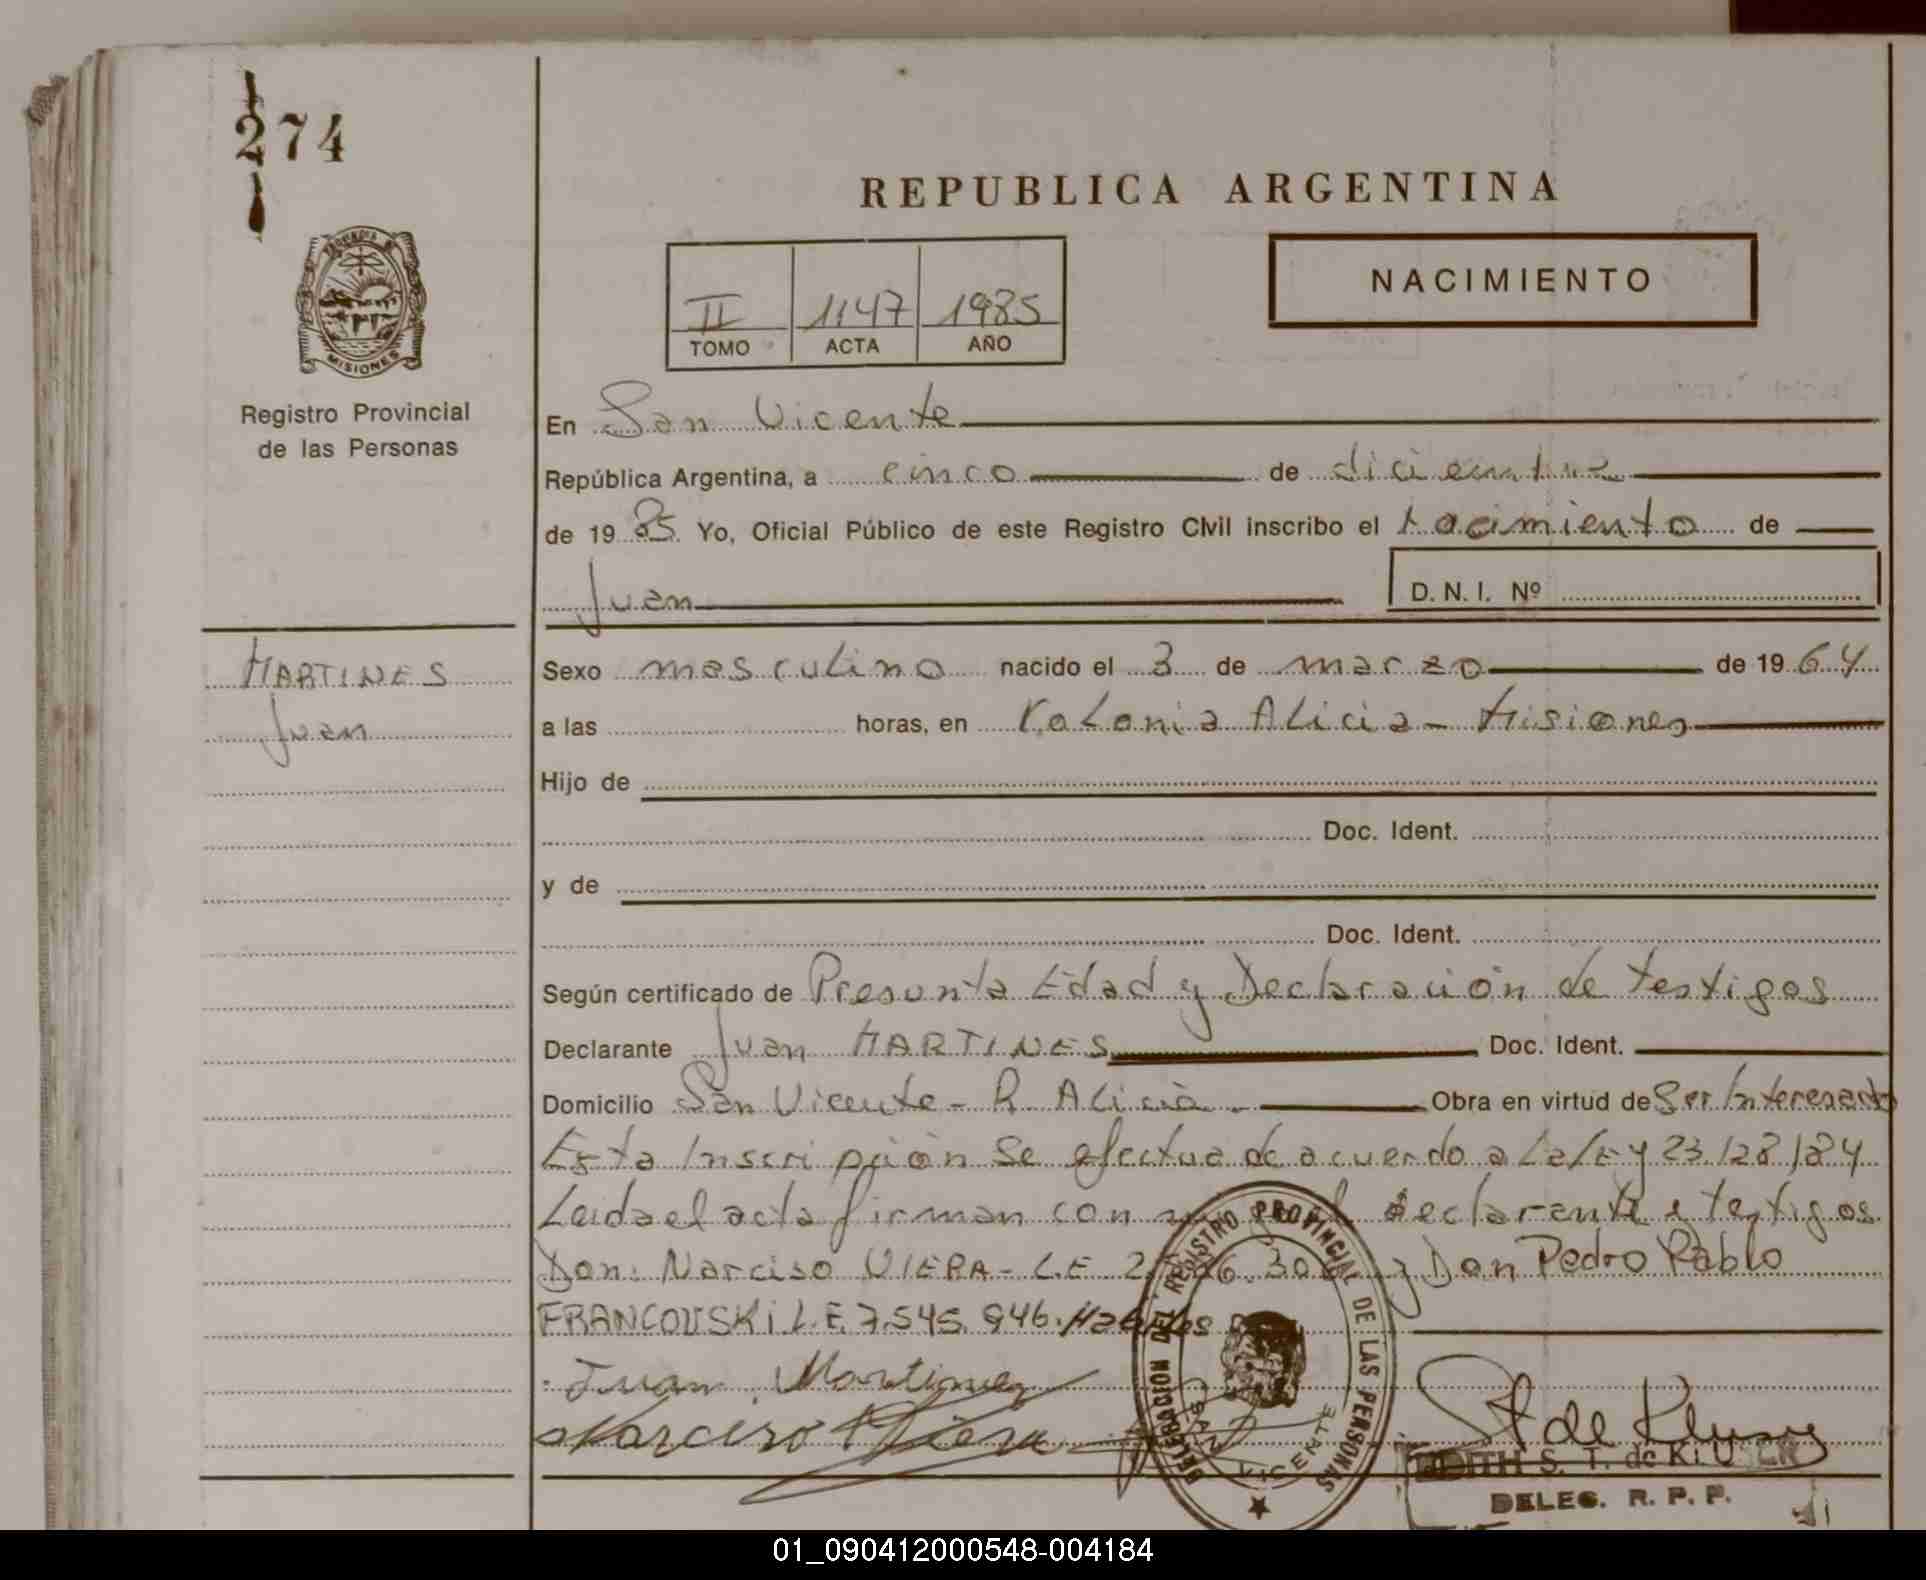 274
REPUBLICA ARGENTINA
PROVINCIA DE MISIONES
Registro Provincial
de las Personas
II 1147 1985
TOMO ACTA AÑO
NACIMIENTO
En San Vicente
República Argentina, a cinco de diciembre
de 1985 Yo, Oficial Público de este Registro Civil inscribo el Nacimiento de
Juan D. N. I. Nº
MARTINES
Juan
Sexo masculino nacido el 3 de marzo de 1964
a las horas, en Kolonia Alicia - Misiones
Hijo de
Doc. Ident.
y de
Doc. Ident.
Según certificado de Presunta Edad y Declaración de testigos
Declarante Juan MARTINES Doc. Ident.
Domicilio San Vicente - P. Alicia - Obra en virtud de Ser Interesado
Esta Inscripción se efectua de acuerdo a La LEY 23.128/84
Leida el acta firman con declarante e testigos
Don: Narciso VIERA - L.E y Don Pedro Pablo
FRANCOUSKi L.E. 7.545.946. Habiles
Juan Martinez
Narciso Viera
DELEGACION DEL REGISTRO PROVINCIAL DE LAS PERSONAS
SAN VICENTE
EDITH S. T. de KLUSER
DELEG. R. P. P.
01_090412000548-004184